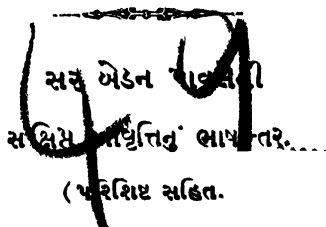 સર બેડન પાવલની
સંક્ષિપ્ત આવૃત્તિનું ભાષાન્તર.
(પરિશિષ્ટ સહિત.